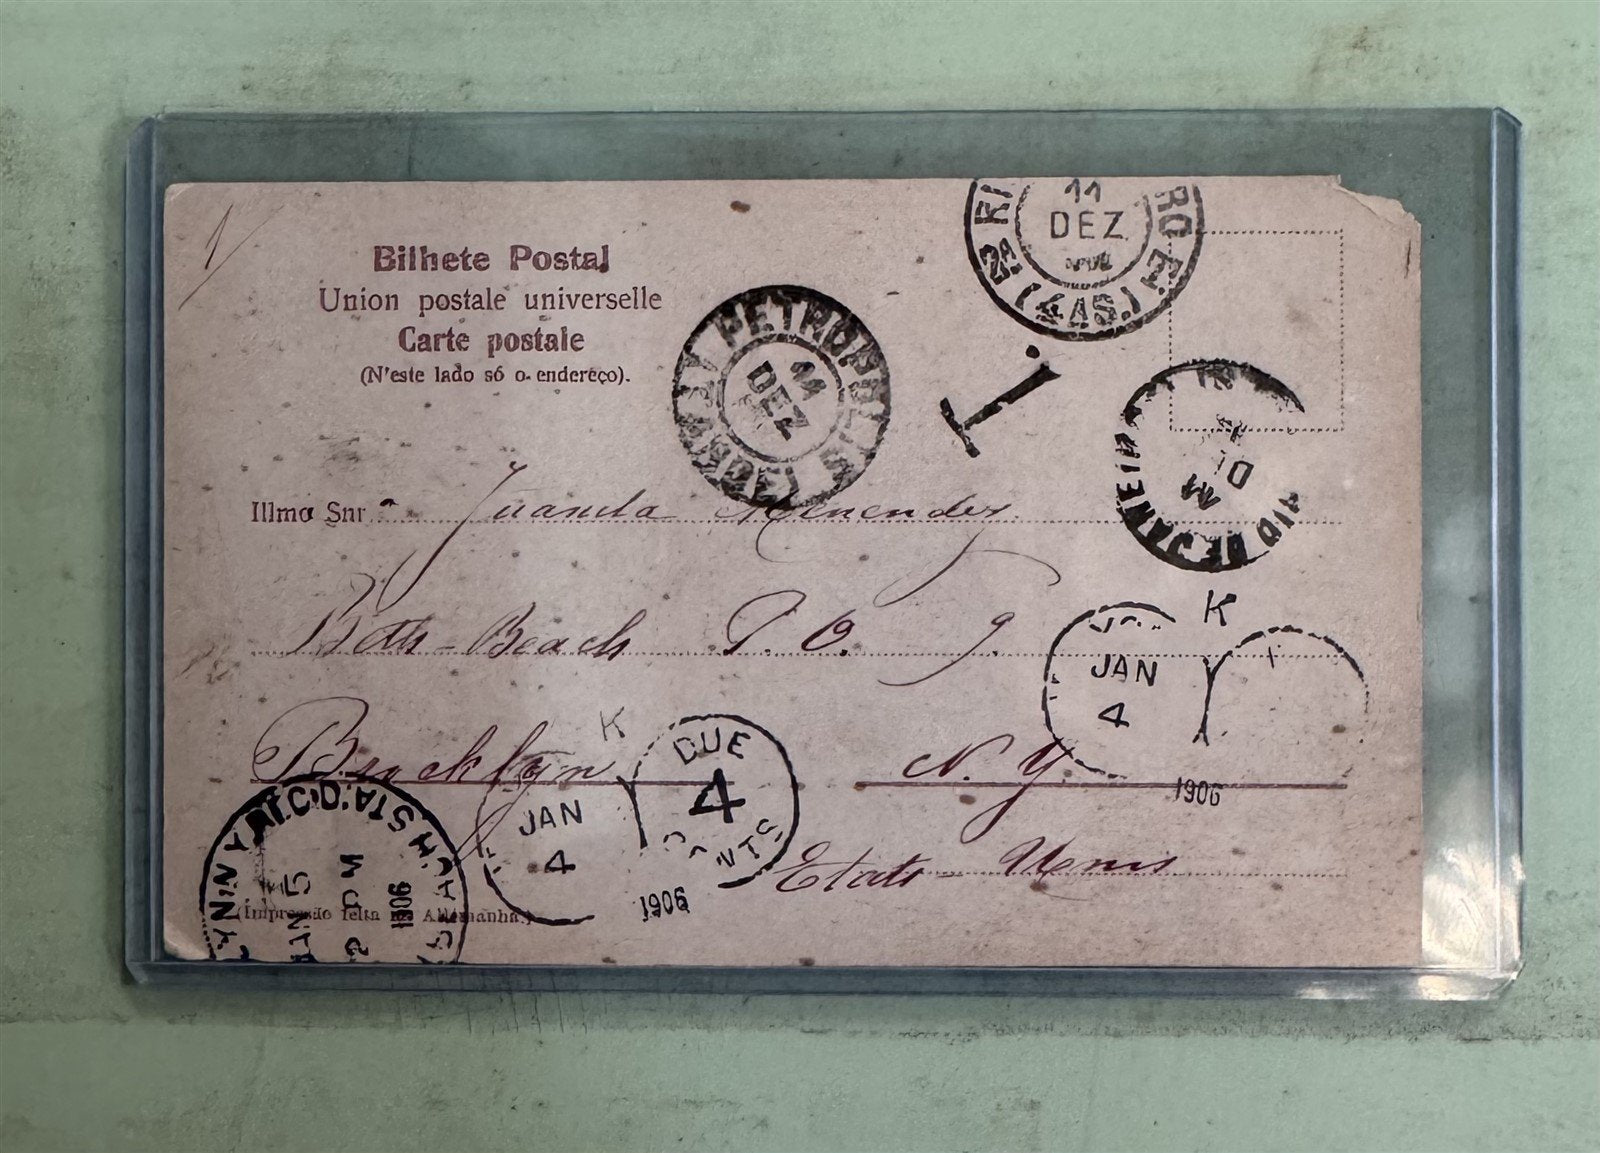 1/
Bilhete Postal
Union postale universelle
Carte postale
(N'este lado só o endereço).
11
DEZ
(4ª S.)
PETROPOLIS
11
DEZ
T.
RIO DE JANEIRO
11
D
Illmo Snr. Juanita Menendez
Bath-Beach P. O. 9.
Brooklyn N. Y.
Etats-Unis
K
JAN
4
1906
K
JAN
4
DUE
4
CENTS
1906
H STA.
JAN 5
2 PM
1906
(Impressão feita na Allemanha.)